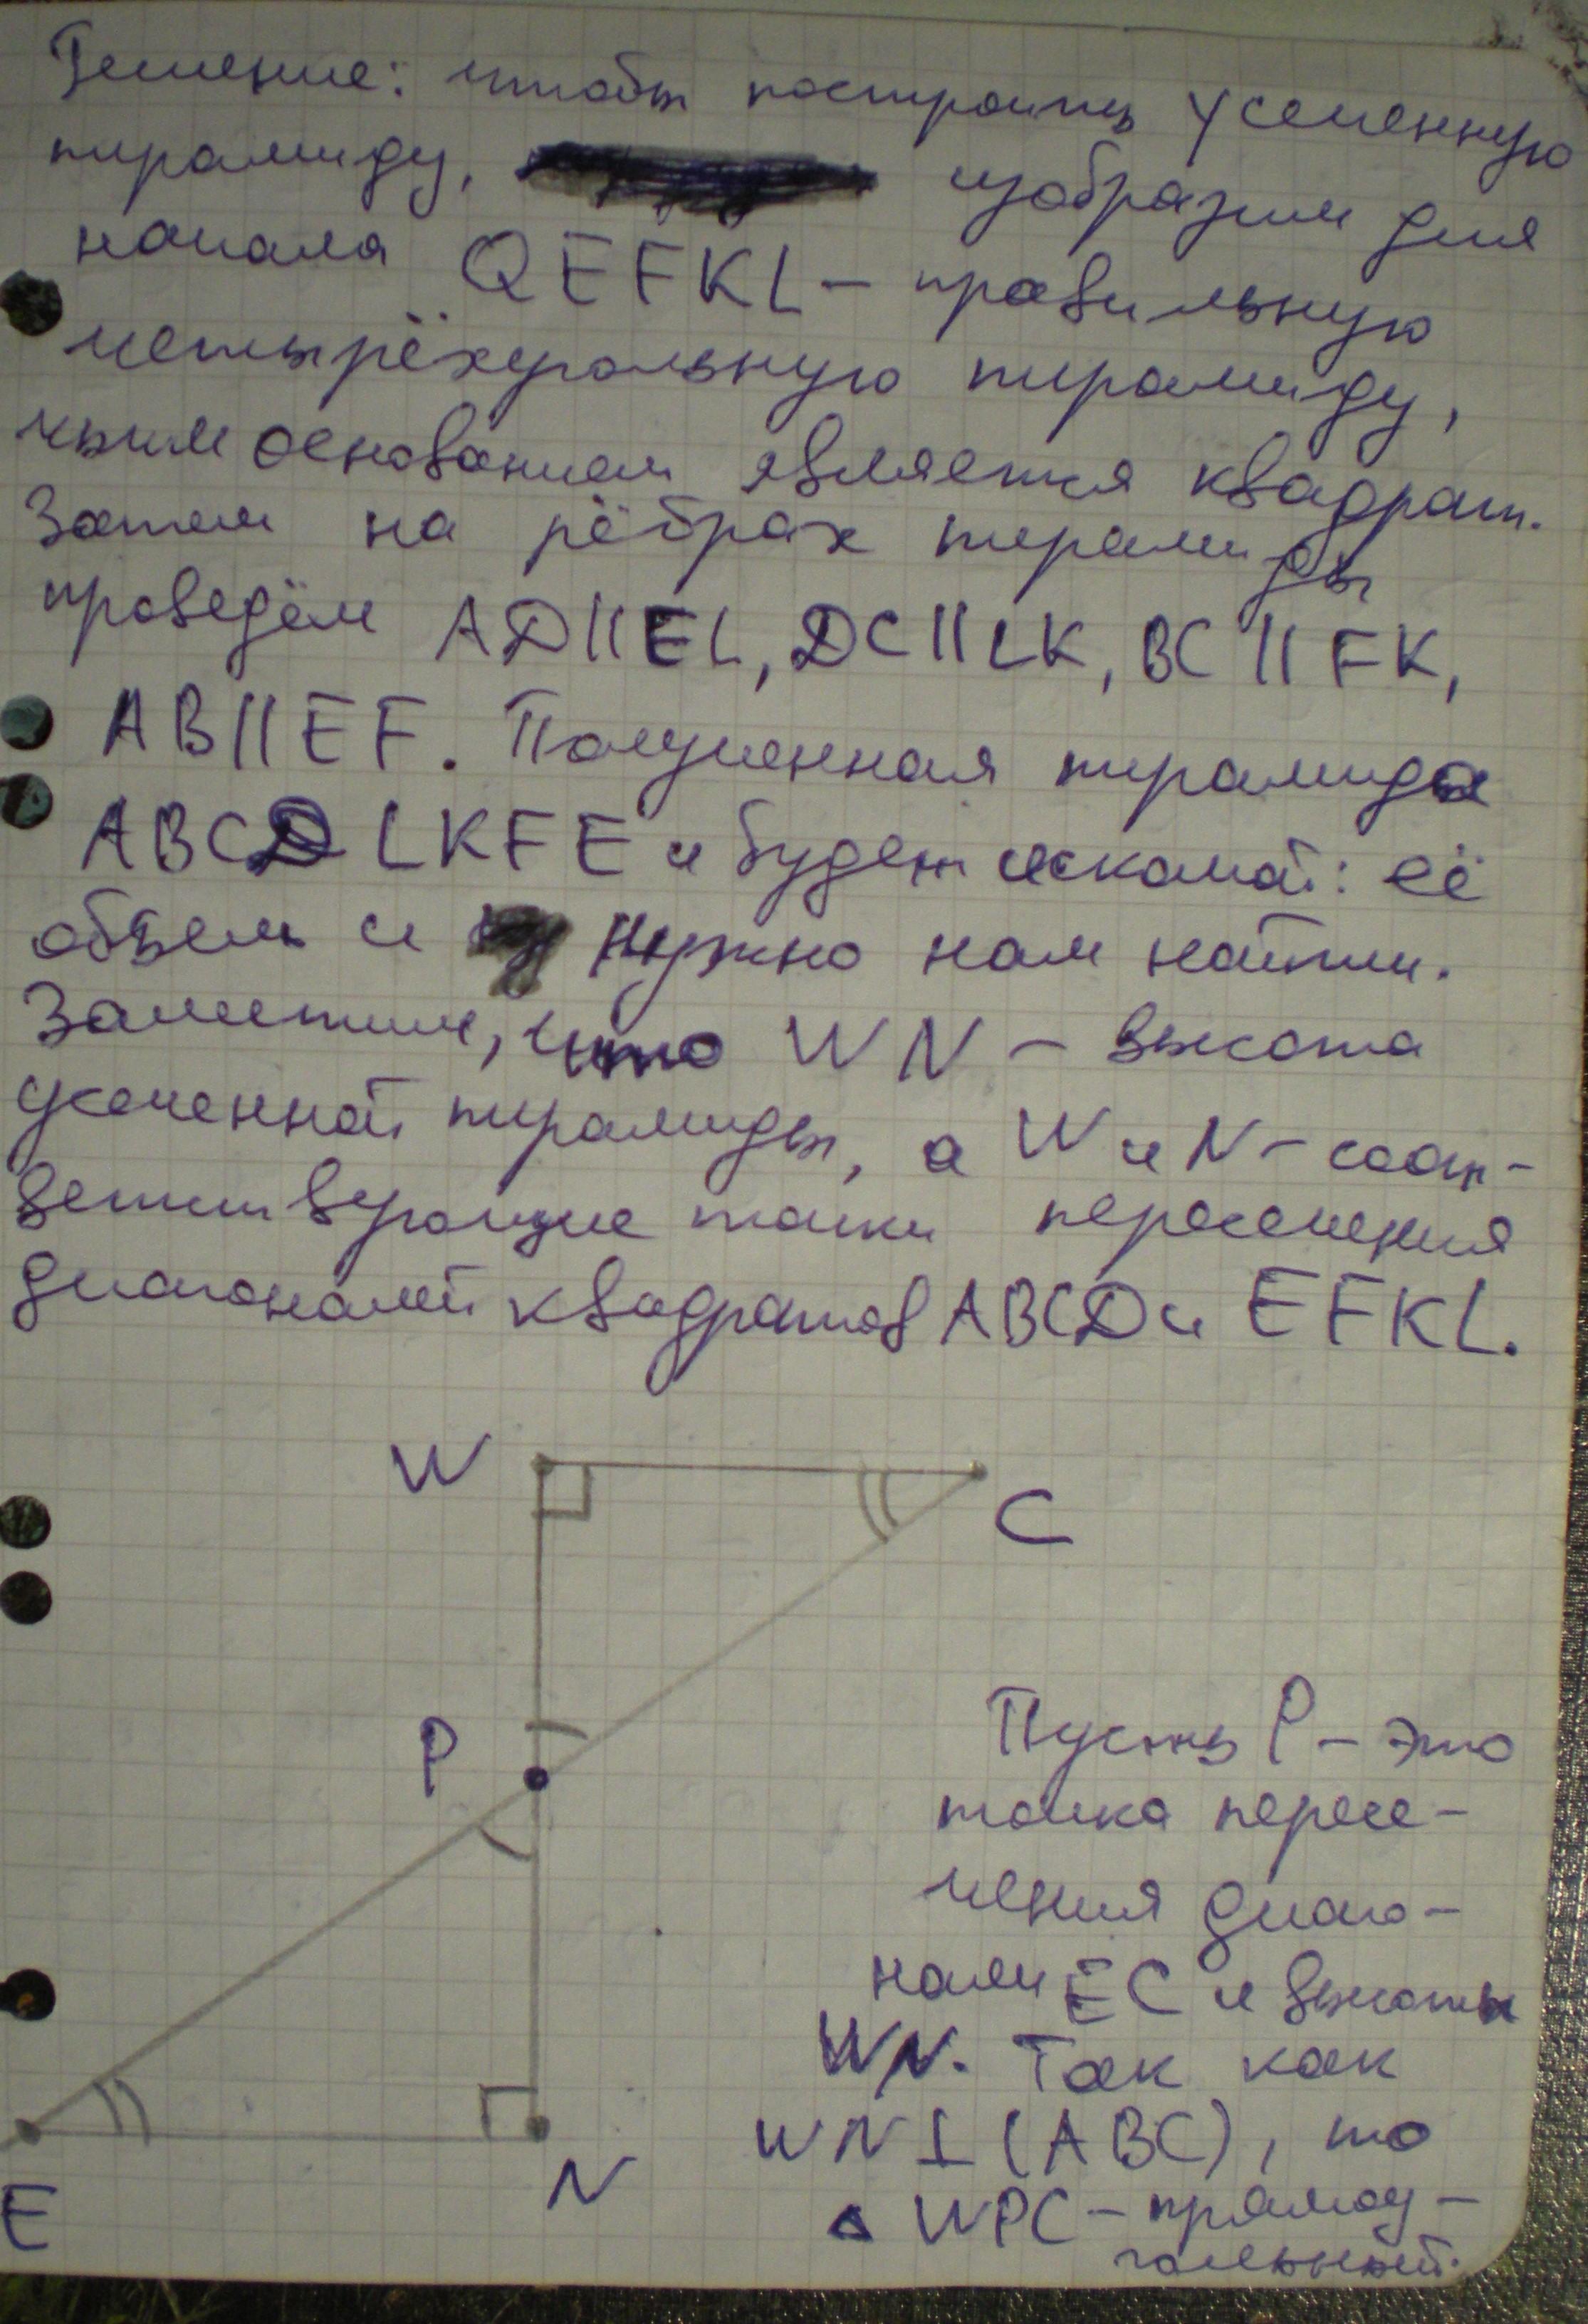 Решение: чтобы построить усеченную
пирамиду, изобразим для
начала QEFKL – правильную
четырёхугольную пирамиду,
чьим основанием является квадрат.
Затем на рёбрах пирамиды
проведём AD||EL, DC||LK, BC||FK,
AB||EF. Полученная пирамида
ABCDLKFE и будет искомой: её
объем и нужно нам найти.
Заметим, что WN – высота
усеченной пирамиды, а W и N – соот-
ветствующие точки пересечения
диагоналей квадратов ABCD и EFKL.
W
C
P
Пусть P – это
точка пересе-
чения диаго-
нали EC и высоты
WN. Так как
WN⊥(ABC), то
△WPC – прямоу-
гольный.
E
N